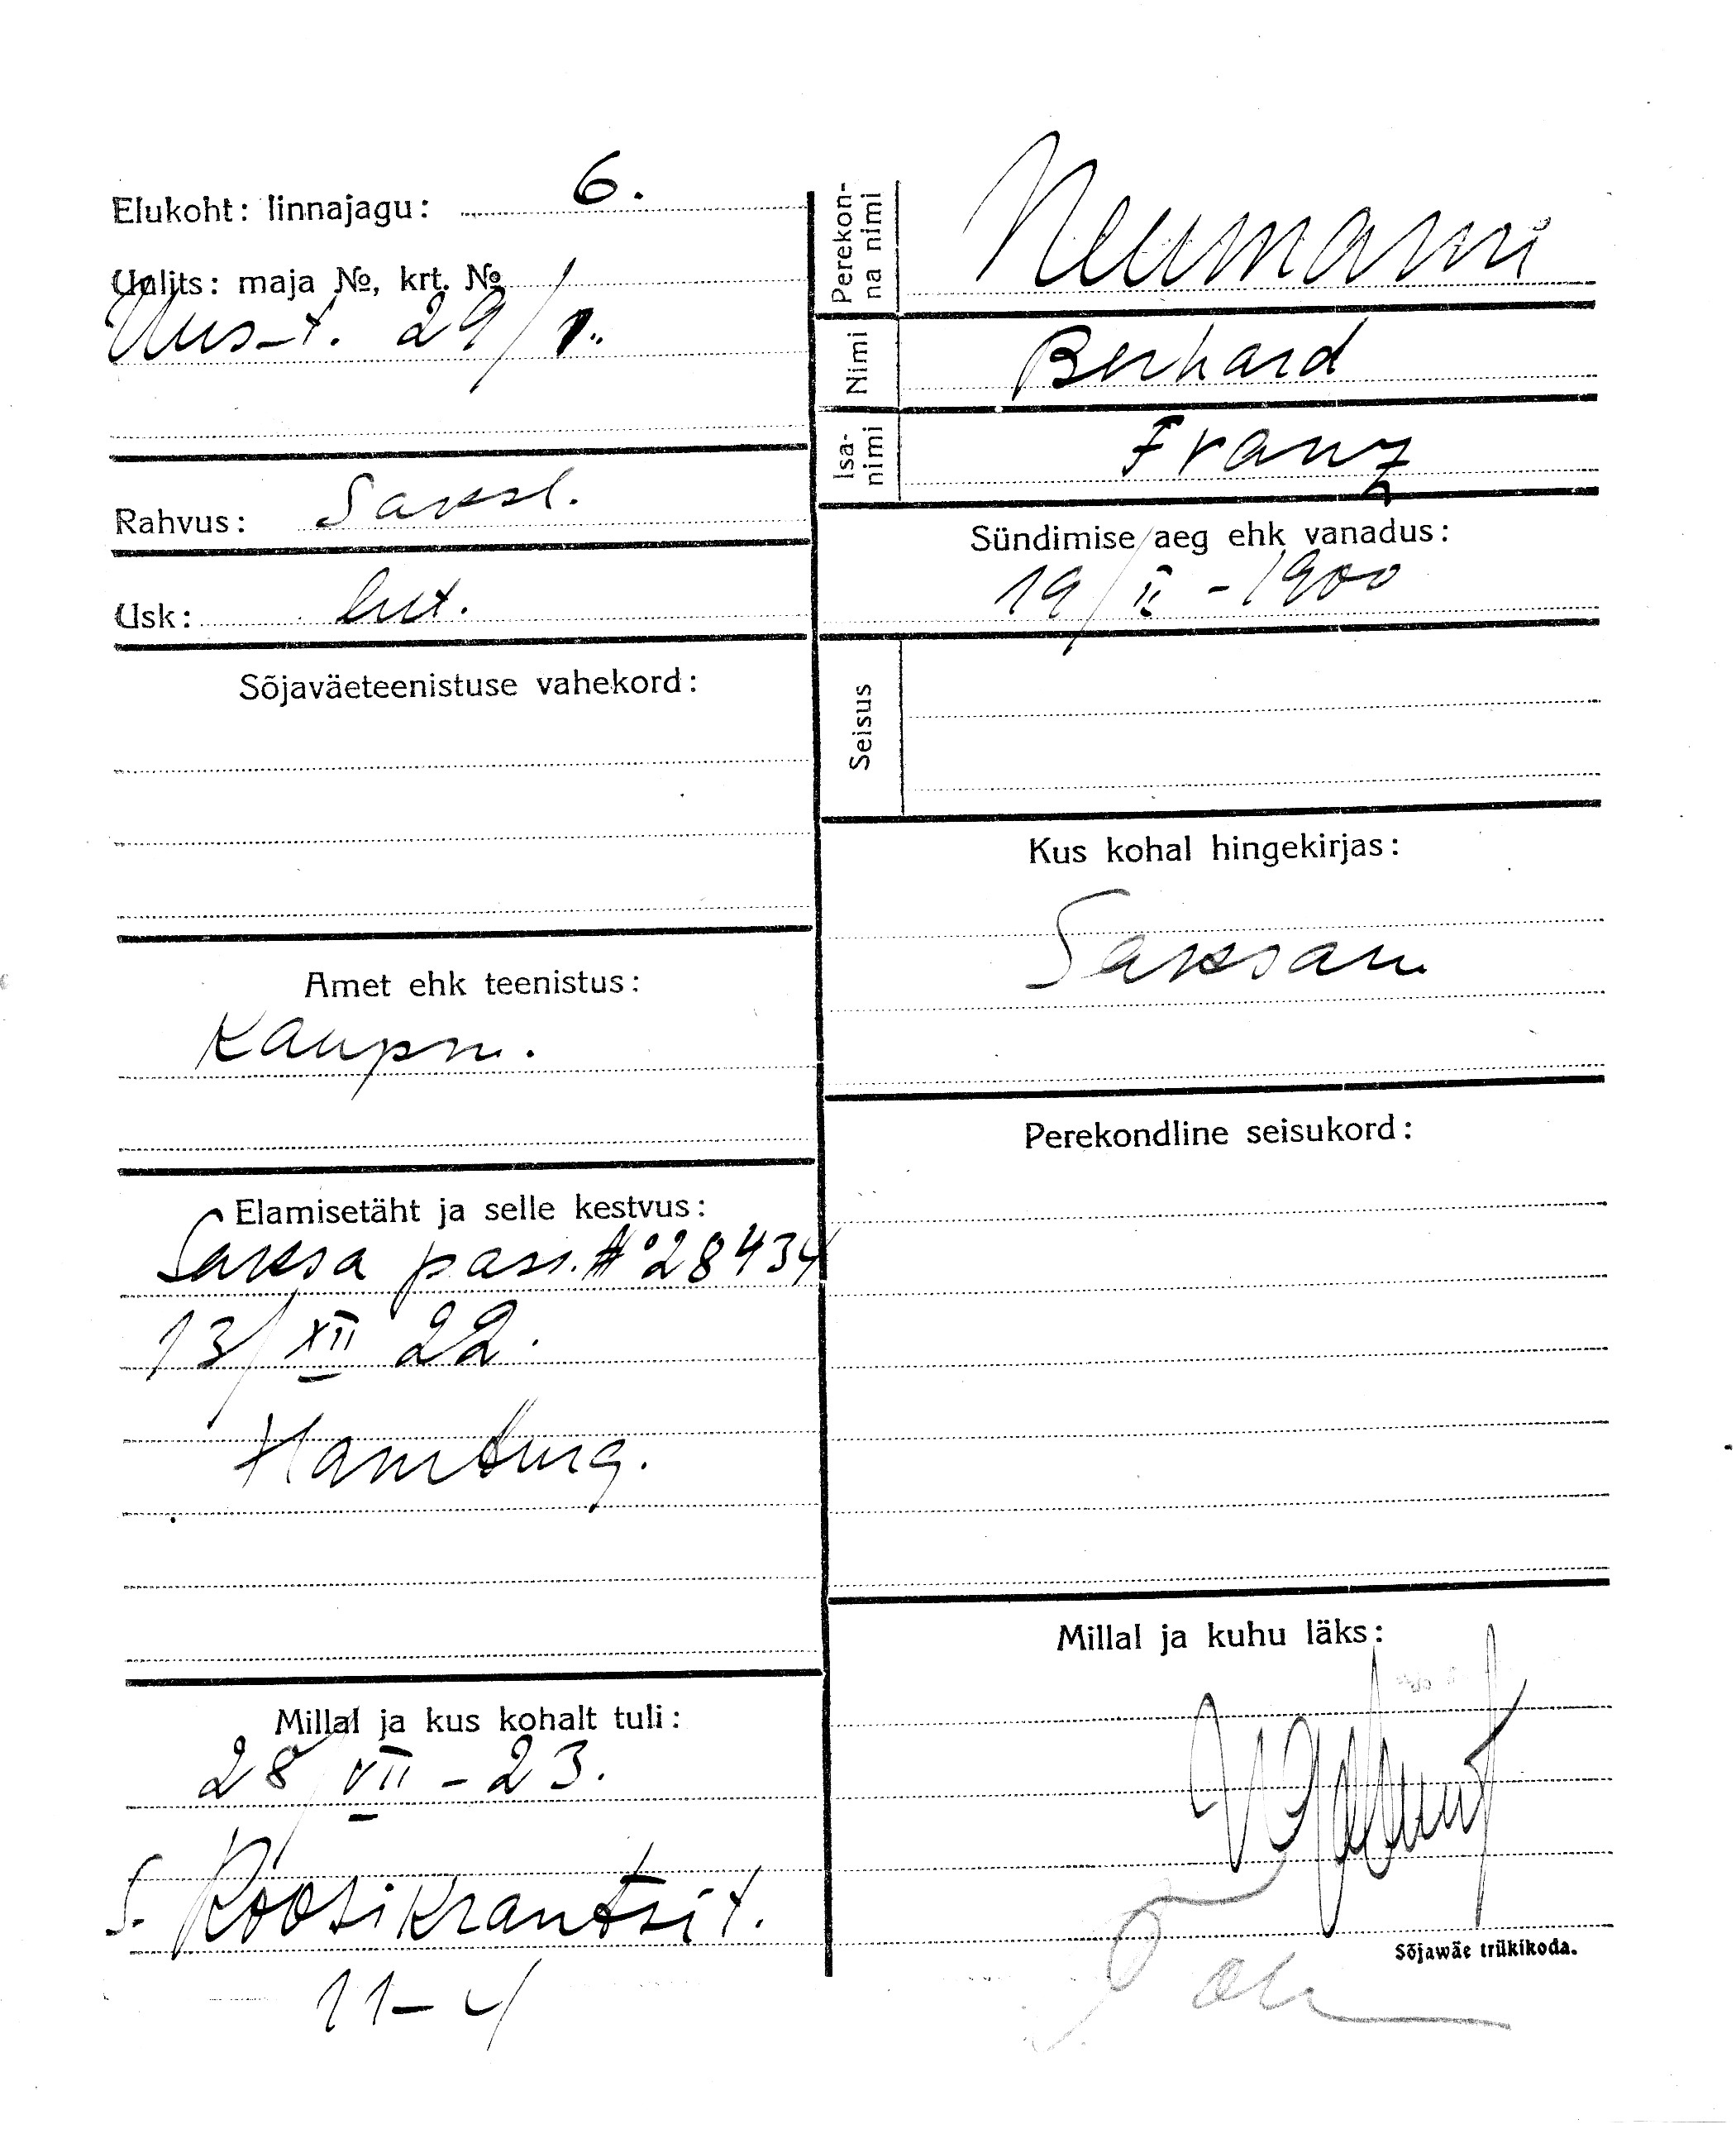 Elukoht: linnajagu: 6.
Uulits: maja №, krt. №
Uus-t. 29/1.
Rahvus: Saksl.
Usk: lut.
Sõjaväeteenistuse vahekord:
Amet ehk teenistus:
Kaupm.
Elamisetäht ja selle kestvus:
Saksa pass. № 28434
13/XII 22.
Hamburg.
Millal ja kus kohalt tuli:
28/VII - 23.
S. Roosikrantsi t.
11-4
Perekonna nimi
Neumann
Nimi
Berhard
Isanimi
Franz
Sündimise aeg ehk vanadus:
19/II - 1900
Seisus
Kus kohal hingekirjas:
Saksam.
Perekondline seisukord:
Millal ja kuhu läks:
Sõjawäe trükikoda.